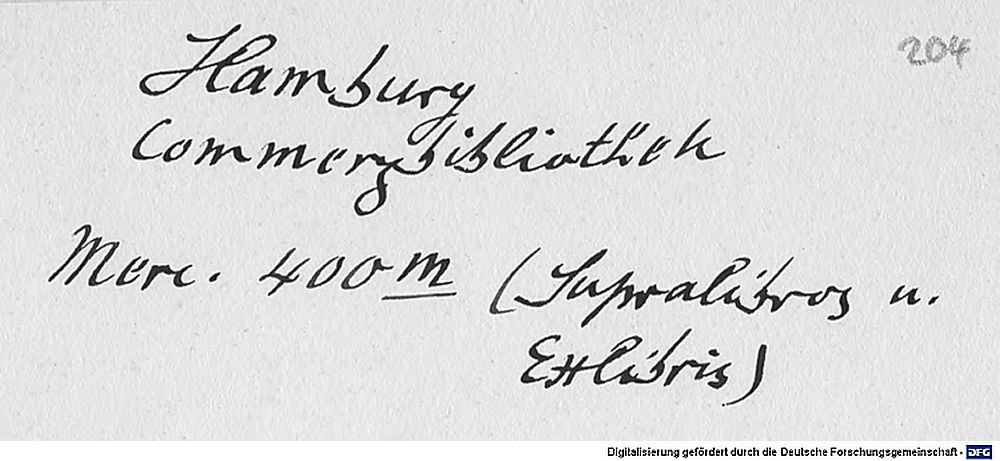 204
Hamburg
Commerzbibliothek
Merc. 400m (Supralibros u.
Exlibris)
Digitalisierung gefördert durch die Deutsche Forschungsgemeinschaft - DFG